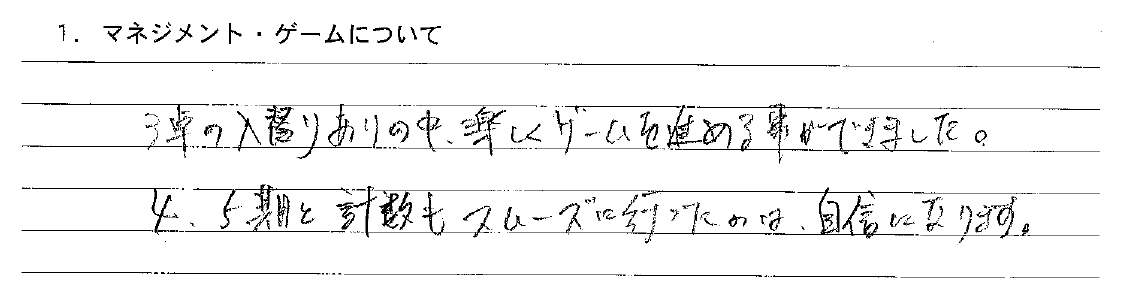 1. マネジメント・ゲームについて
3卓の入替りありの中、楽しくゲームを進める事ができました。
4、5期と計数もスムーズに行ったのは、自信になります。